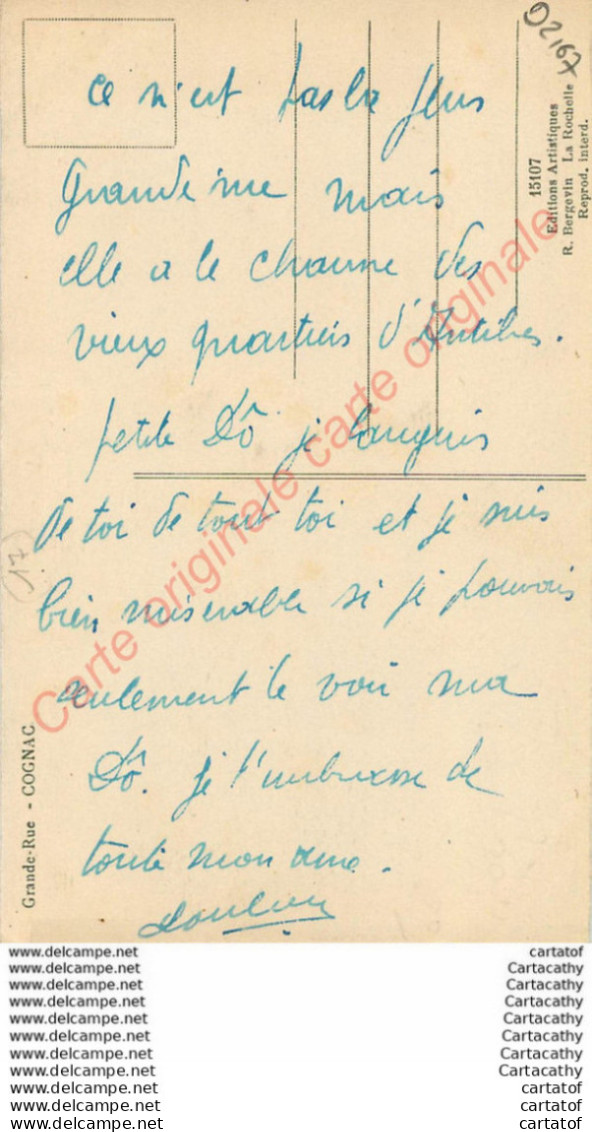 02167
15107
Editions Artistiques
R. Bergevin La Rochelle
Reprod. interd.
ce n'est pas la plus
Grande rue mais
elle a le charme des
vieux quartiers d'Antibes.
petite Dô je languis
de toi de tout toi et je suis
bien misérable si je pouvais
seulement te voir ma
Dô. je t'embrasse de
toute mon âme.
17
Grande-Rue - COGNAC
Carte originale carte originale
www.delcampe.net cartatof
www.delcampe.net Cartacathy
www.delcampe.net Cartacathy
www.delcampe.net cartatof
www.delcampe.net Cartacathy
www.delcampe.net cartatof
www.delcampe.net Cartacathy
www.delcampe.net Cartacathy
www.delcampe.net cartatof
www.delcampe.net cartatof
www.delcampe.net cartatof